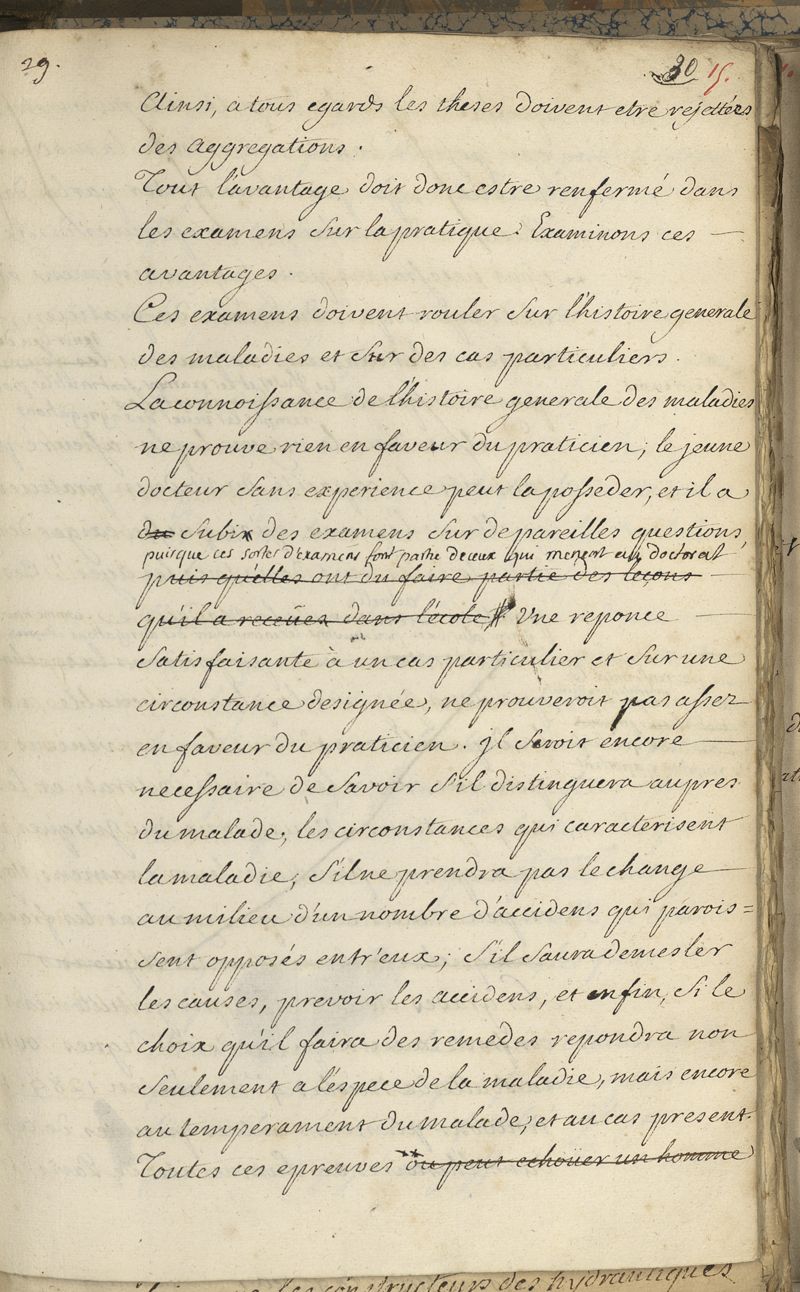 29.
30 15.
Ainsi, a tous egards les theses doivent etre rejettées
des aggregations.
Tout l'avantage doit donc estre renfermé dans
les examens sur la pratique. Examinons ces —
avantages.
Ces examens doivent rouler sur l'histoire generale
des maladies et sur des cas particuliers.
La connoissance de l'histoire generale des maladies
ne prouve rien en faveur du praticien; le jeune
docteur sans experience peut la posseder, et il a
du subir des examens sur de pareilles questions,
puisque ces sortes d'examens font partie de ceux qui menent au doctorat
puis qu'elles ont du faire partie des leçons —
qu'il a receües dans l'école. Une reponce —
satisfaisante à un cas particulier et sur une
circonstance designée, ne prouveroit pas assez
en faveur du praticien. jl seroit encore —
necessaire de savoir s'il distinguera aupres
du malade, les circonstances qui caracterisent
la maladie; s'il ne prendra pas le change —
au milieu d'un nombre d'accidens qui parois=
sent opposés entr'eux; s'il saura demesler
les causes, prevoir les accidens, et enfin, si le
choix qu'il faira des remedes repondra non
seulement a l'espece de la maladie, mais encore
au temperament du malade, et au cas present.
Toutes ces epreuves ou peut echoüer un homme
les constructeurs des hydrauliques